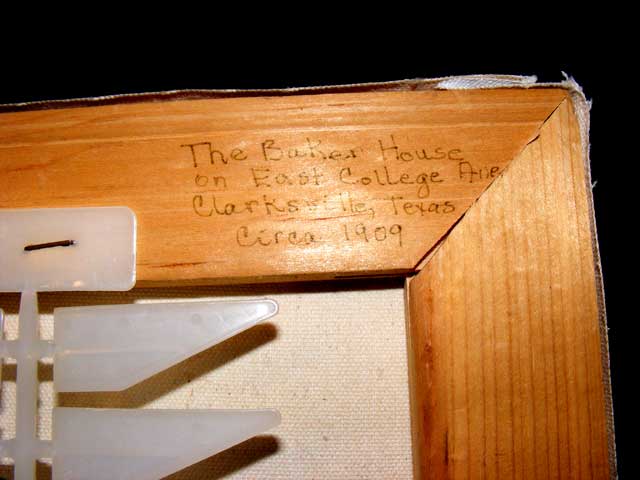 The Baker House
on East College Ave
Clarksville, Texas
Circa 1909